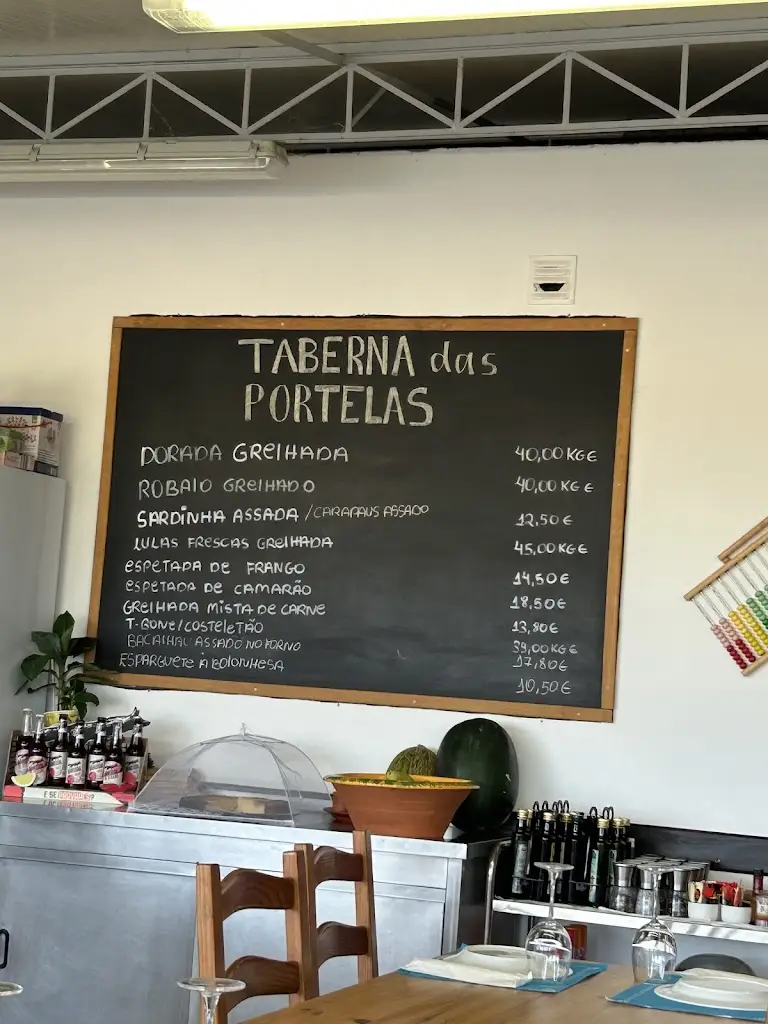 TABERNA das
PORTELAS
DORADA GRELHADA 40,00 KG€
ROBALO GRELHADO 40,00 KG€
SARDINHA ASSADA / CARAPAUS ASSADO 12,50 €
LULAS FRESCAS GRELHADA 45,00 KG€
ESPETADA DE FRANGO 14,50 €
ESPETADA DE CAMARÃO 18,50 €
GRELHADA MISTA DE CARNE 13,80 €
T-BONE/COSTELETÃO 39,00 KG€
BACALHAU ASSADO NO FORNO 17,80 €
ESPARGUETE À BOLONHESA 10,50 €
E SE